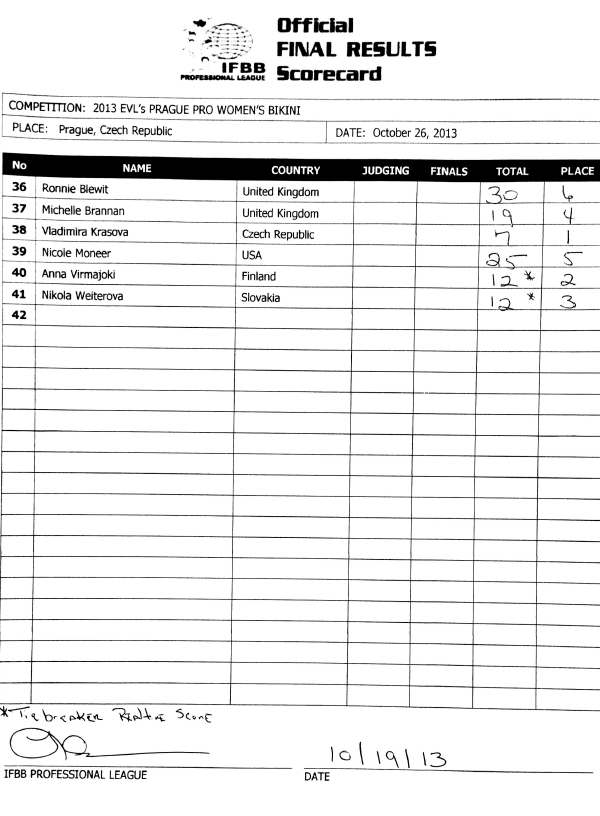 Official
FINAL RESULTS
IFBB
PROFESSIONAL LEAGUE
Scorecard
COMPETITION: 2013 EVL's PRAGUE PRO WOMEN'S BIKINI
PLACE: Prague, Czech Republic DATE: October 26, 2013
No NAME COUNTRY JUDGING FINALS TOTAL PLACE
36 Ronnie Blewit United Kingdom 30 6
37 Michelle Brannan United Kingdom 19 4
38 Vladimira Krasova Czech Republic 7 1
39 Nicole Moneer USA 25 5
40 Anna Virmajoki Finland 12 * 2
41 Nikola Weiterova Slovakia 12 * 3
42
*Tiebreaker Score
10/19/13
IFBB PROFESSIONAL LEAGUE DATE